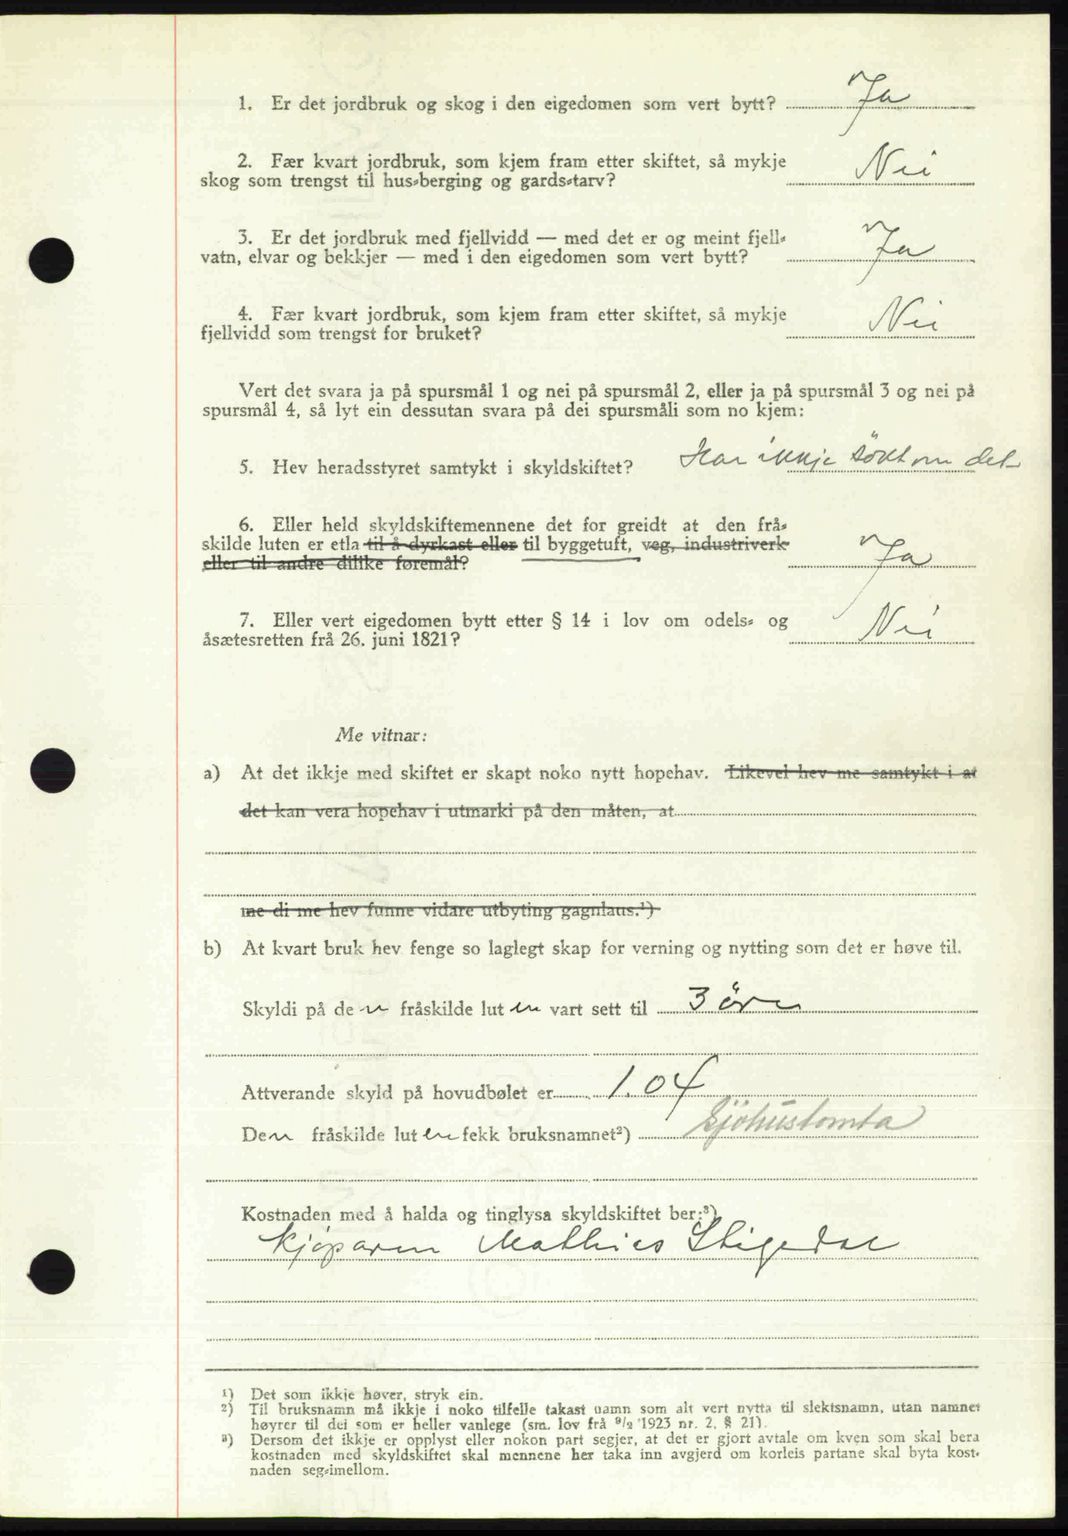 1. Er det jordbruk og skog i den eigedomen som vert bytt? Ja
2. Fær kvart jordbruk, som kjem fram etter skiftet, så mykje
skog som trengst til hus-berging og gards-tarv? Nei
3. Er det jordbruk med fjellvidd — med det er og meint fjell-
vatn, elvar og bekkjer — med i den eigedomen som vert bytt? Ja
4. Fær kvart jordbruk, som kjem fram etter skiftet, så mykje
fjellvidd som trengst for bruket? Nei
Vert det svara ja på spursmål 1 og nei på spursmål 2, eller ja på spursmål 3 og nei på
spursmål 4, så lyt ein dessutan svara på dei spursmåli som no kjem:
5. Hev heradsstyret samtykt i skyldskiftet? Har ikkje søkt om det
6. Eller held skyldskiftemennene det for greidt at den frå-
skilde luten er etla til å dyrkast eller til byggetuft, veg, industriverk
eller til andre dilike føremål? Ja
7. Eller vert eigedomen bytt etter § 14 i lov om odels- og
åsætesretten frå 26. juni 1821? Nei
Me vitnar:
a) At det ikkje med skiftet er skapt noko nytt hopehav. Likevel hev me samtykt i at
det kan vera hopehav i utmarki på den måten, at
me di me hev funne vidare utbyting gagnlaus.¹)
b) At kvart bruk hev fenge so laglegt skap for verning og nytting som det er høve til.
Skyldi på den fråskilde luten vart sett til 3 øre
Attverande skyld på hovudbølet er 1.04
Den fråskilde luten fekk bruksnamnet²) Sjøhustomta
Kostnaden med å halda og tinglysa skyldskiftet ber:³)
kjøparen Mathies Stigedal
¹) Det som ikkje høver, stryk ein.
²) Til bruksnamn må ikkje i noko tilfelle takast namn som alt vert nytta til slektsnamn, utan namnet
høyrer til dei som er heller vanlege (sm. lov frå ⁹/₂ 1923 nr. 2, § 21).
³) Dersom det ikkje er opplyst eller nokon part segjer, at det er gjort avtale om kven som skal bera
kostnaden med skyldskiftet skal mennene her taka inn avgjerd om korleis partane skal byta kost-
naden seg-imellom.